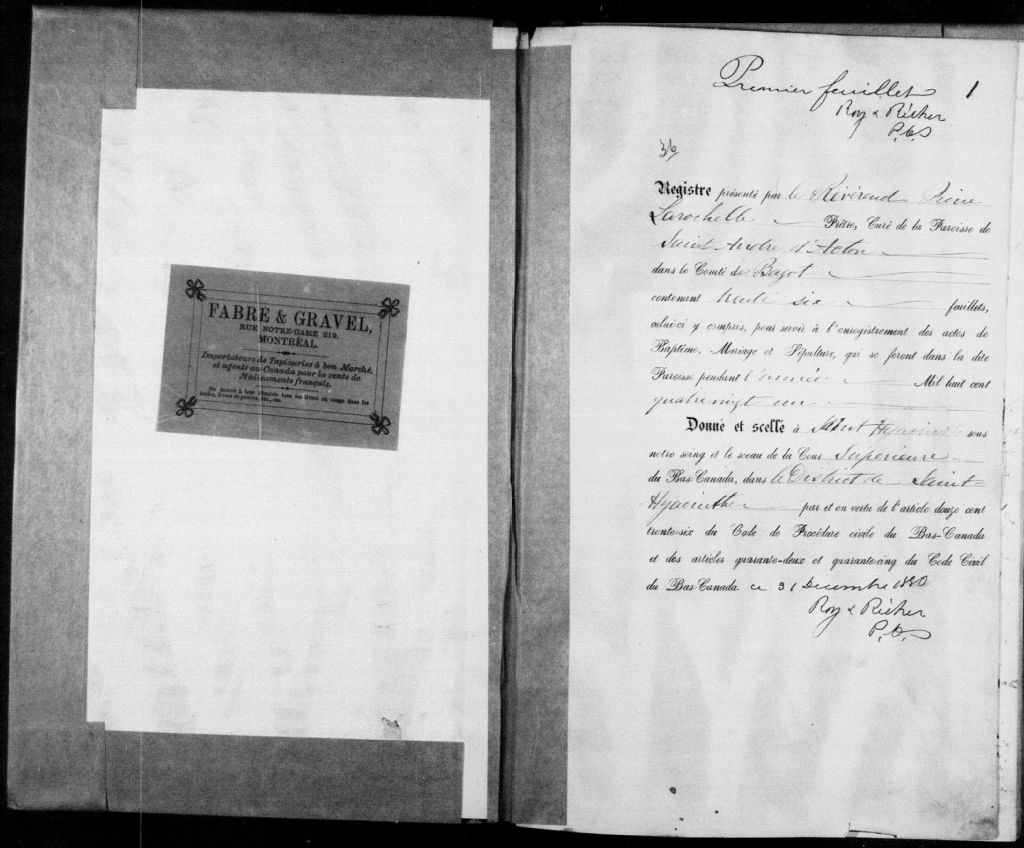 FABRE & GRAVEL,
RUE NOTRE-DAME 219,
MONTRÉAL.
Importateurs de Tapisseries à bon Marché,
et agents au Canada pour la vente de
Médicaments français.
On trouve à leur librairie tous les livres en usage dans les
écoles, livres de prières, etc., etc.
Premier feuillet 1
Roy & Richer
P.C.S
36
Registre présenté par le Révérend Pierre
Larochelle Prêtre, Curé de la Paroisse de
Saint André d'Acton
dans le Comté de Bagot
contenant trente six feuillets,
celui-ci y compris, pour servir à l'enregistrement des actes de
Baptême, Mariage et Sépulture, qui se feront dans la dite
Paroisse pendant l'année Mil huit cent
quatre vingt un
Donné et scellé à Saint Hyacinthe sous
notre seing et le sceau de la Cour Supérieure
du Bas-Canada, dans le District de Saint-
Hyacinthe par et en vertu de l'article douze cent
trente-six du Code de Procédure civile du Bas-Canada
et des articles quarante-deux et quarante-cinq du Code Civil
du Bas-Canada. ce 31 Décembre 1880
Roy & Richer
P.C.S